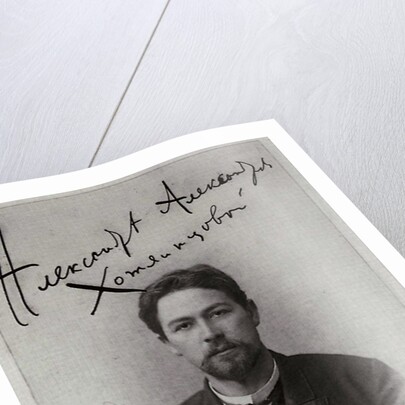 Александрѣ Александр
Хотяинцовой